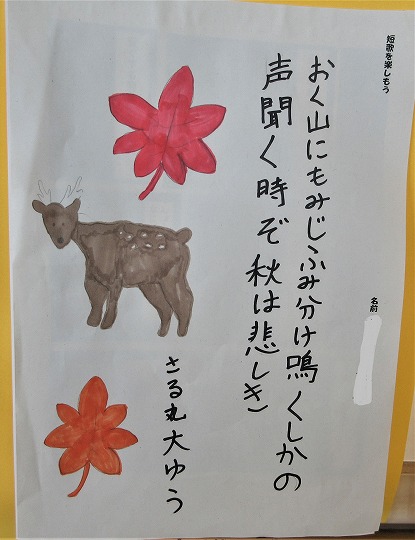 短歌を楽しもう
名前
おく山にもみじふみ分け鳴くしかの
声聞く時ぞ秋は悲しき
さる丸大ゆう